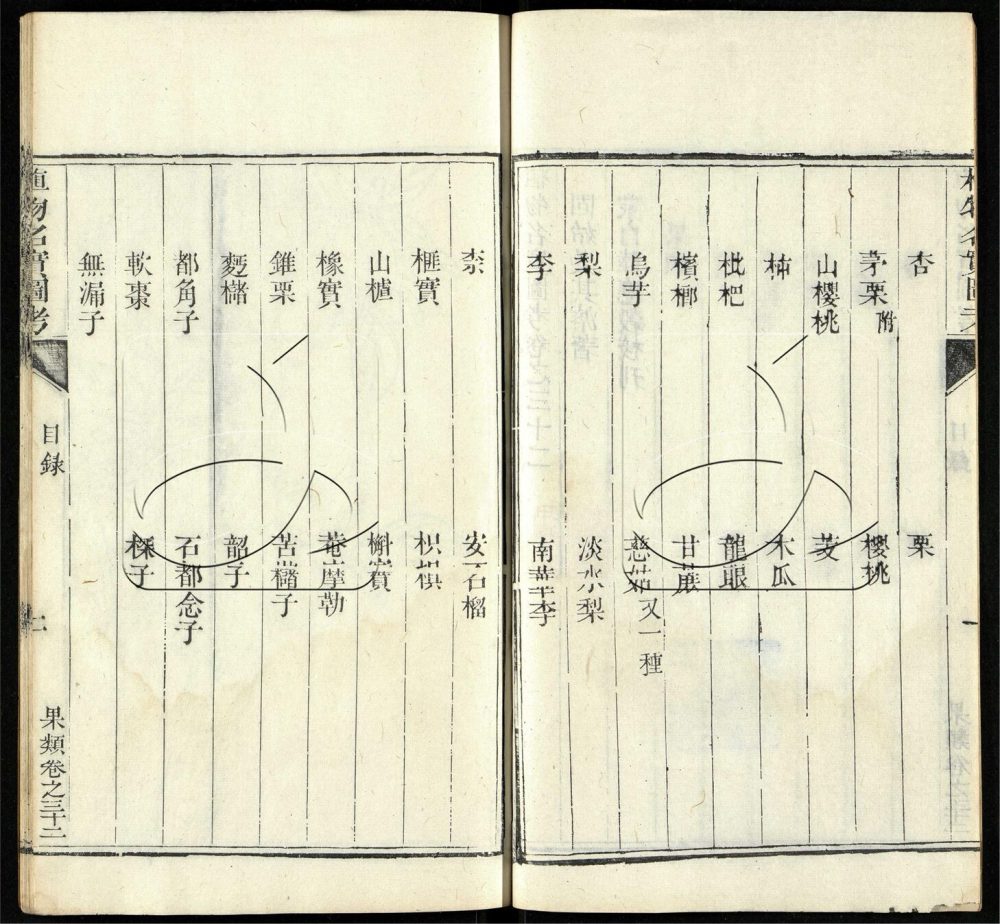 杏 栗
茅栗附 櫻桃
山櫻桃 芰
柿 木瓜
枇杷 龍眼
檳榔 甘蔗
烏芋 慈姑又一種
梨 淡水梨
李 南華李
柰 安石榴
榧實 枳椇
山樝 槲實
橡實 菴摩勒
錐栗 苦櫧子
麪櫧 韶子
都角子 石都念子
軟棗 㮏子
無漏子
植物名實圖考
目錄
二
果類卷之三十二